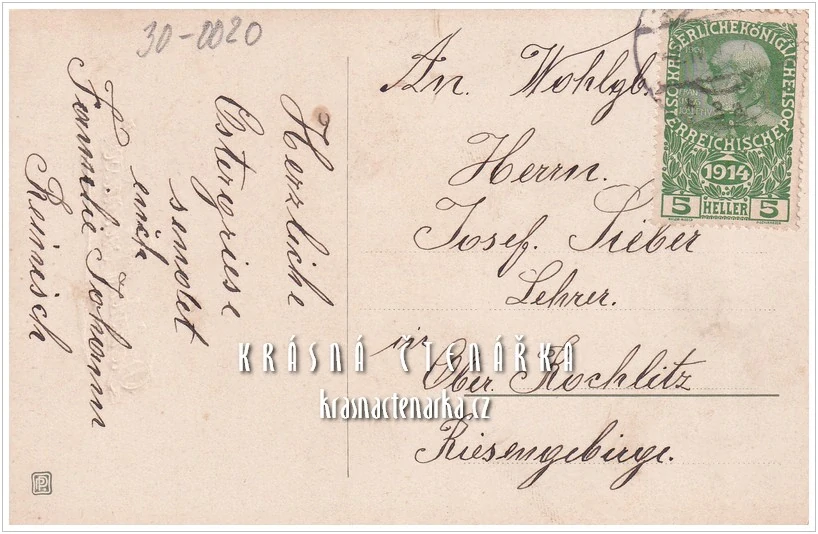 30-0020
Herzliche
Ostergriese
sendet
euch
Familie Johann
Reinisch
An. Wohlgb.
Herrn.
Josef. Sieber
Lehrer.
in
Ober. Rochlitz
Riesengebirge.
1914
5 HELLER 5
KRÁSNÁ ČTENÁŘKA
krasnactenarka.cz